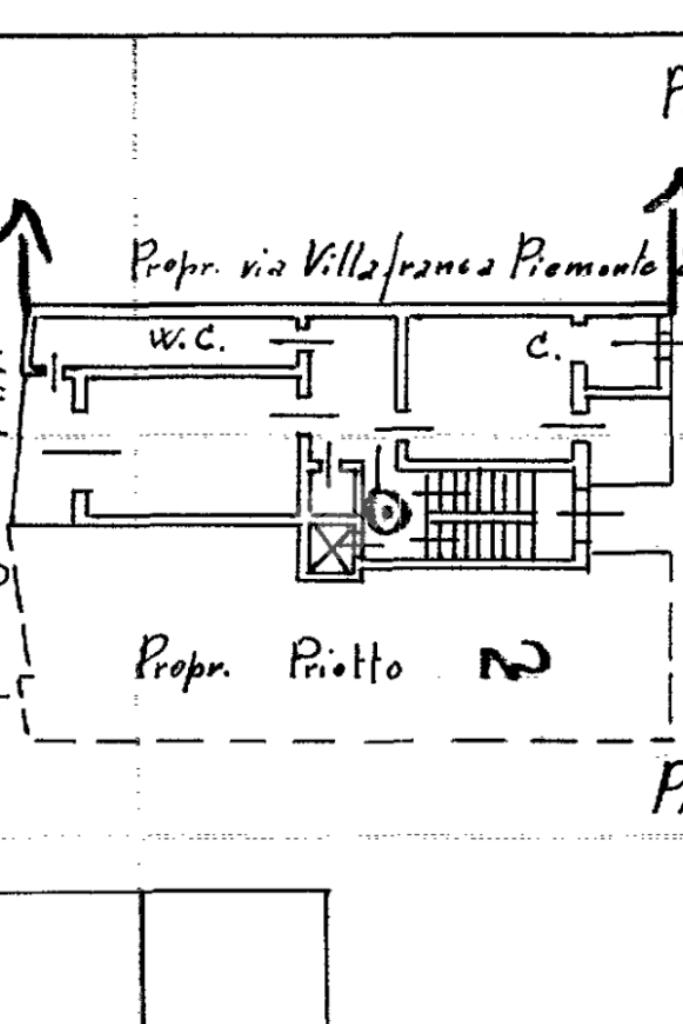 Propr. via Villafranca Piemonte
W.C.
C.
Propr. Priotto 2